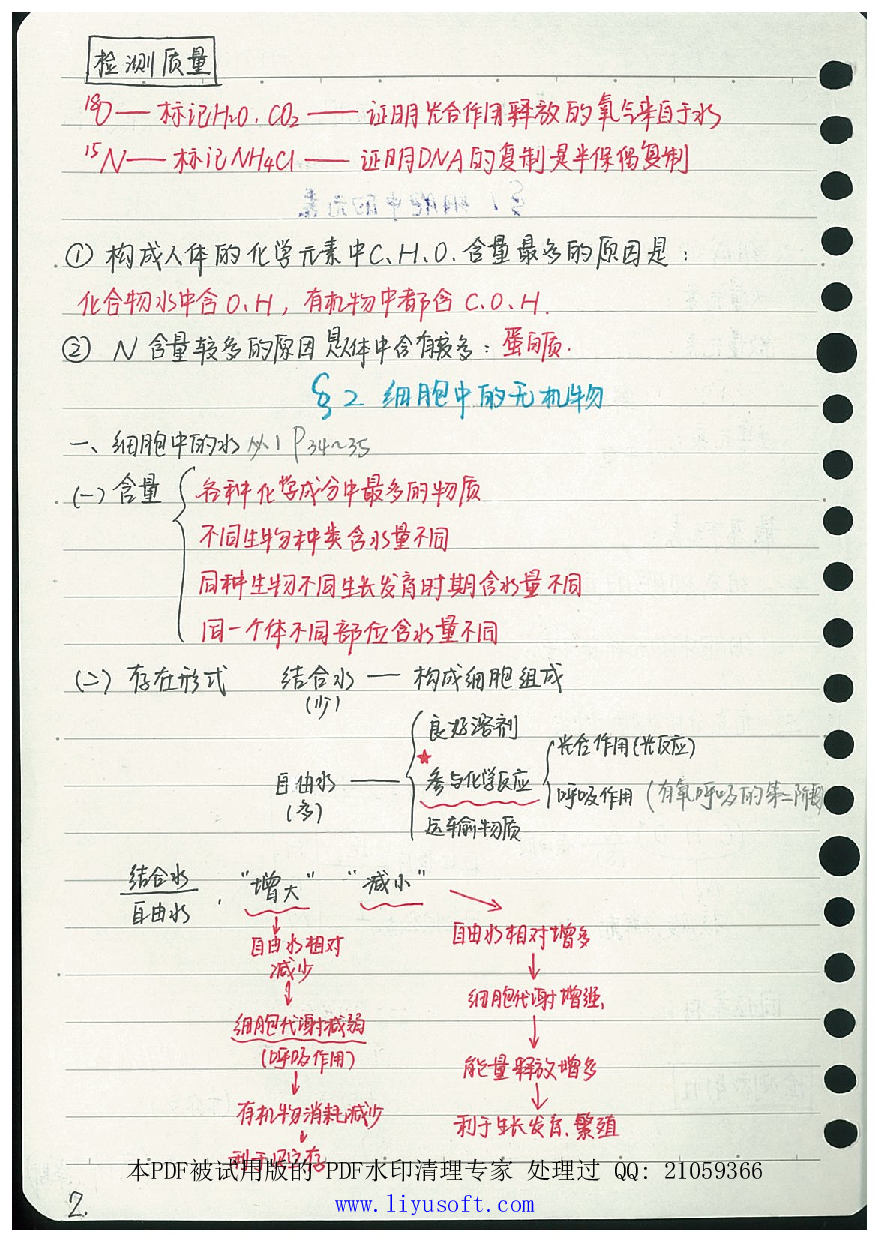 检测质量
¹⁸O — 标记H₂O、CO₂ — 证明光合作用释放的氧气来自于水
¹⁵N — 标记NH₄Cl — 证明DNA的复制是半保留复制
① 构成人体的化学元素中C、H、O、含量最多的原因是：
化合物水中含O、H，有机物中都含C、O、H.
② N 含量较多的原因是人体中含有较多：蛋白质.
§2 细胞中的无机物
一、细胞中的水 必1 P34~35
(一) 含量
各种化学成分中最多的物质
不同生物种类含水量不同
同种生物不同生长发育时期含水量不同
同一个体不同部位含水量不同
(二) 存在形式 结合水 — 构成细胞组成
(少)
良好溶剂
自由水 — ★参与化学反应
(多)
光合作用(光反应)
呼吸作用 (有氧呼吸的第二阶段
运输物质
结合水
自由水 ， “增大” “减小”
自由水相对
减少
↓
细胞代谢减弱
(呼吸作用)
↓
有机物消耗减少
↓
利于贮存
自由水相对增多
↓
细胞代谢增强,
↓
能量释放增多
↓
利于生长发育、繁殖
本PDF被试用版的 PDF水印清理专家 处理过 QQ: 21059366
www.liyusoft.com
2.